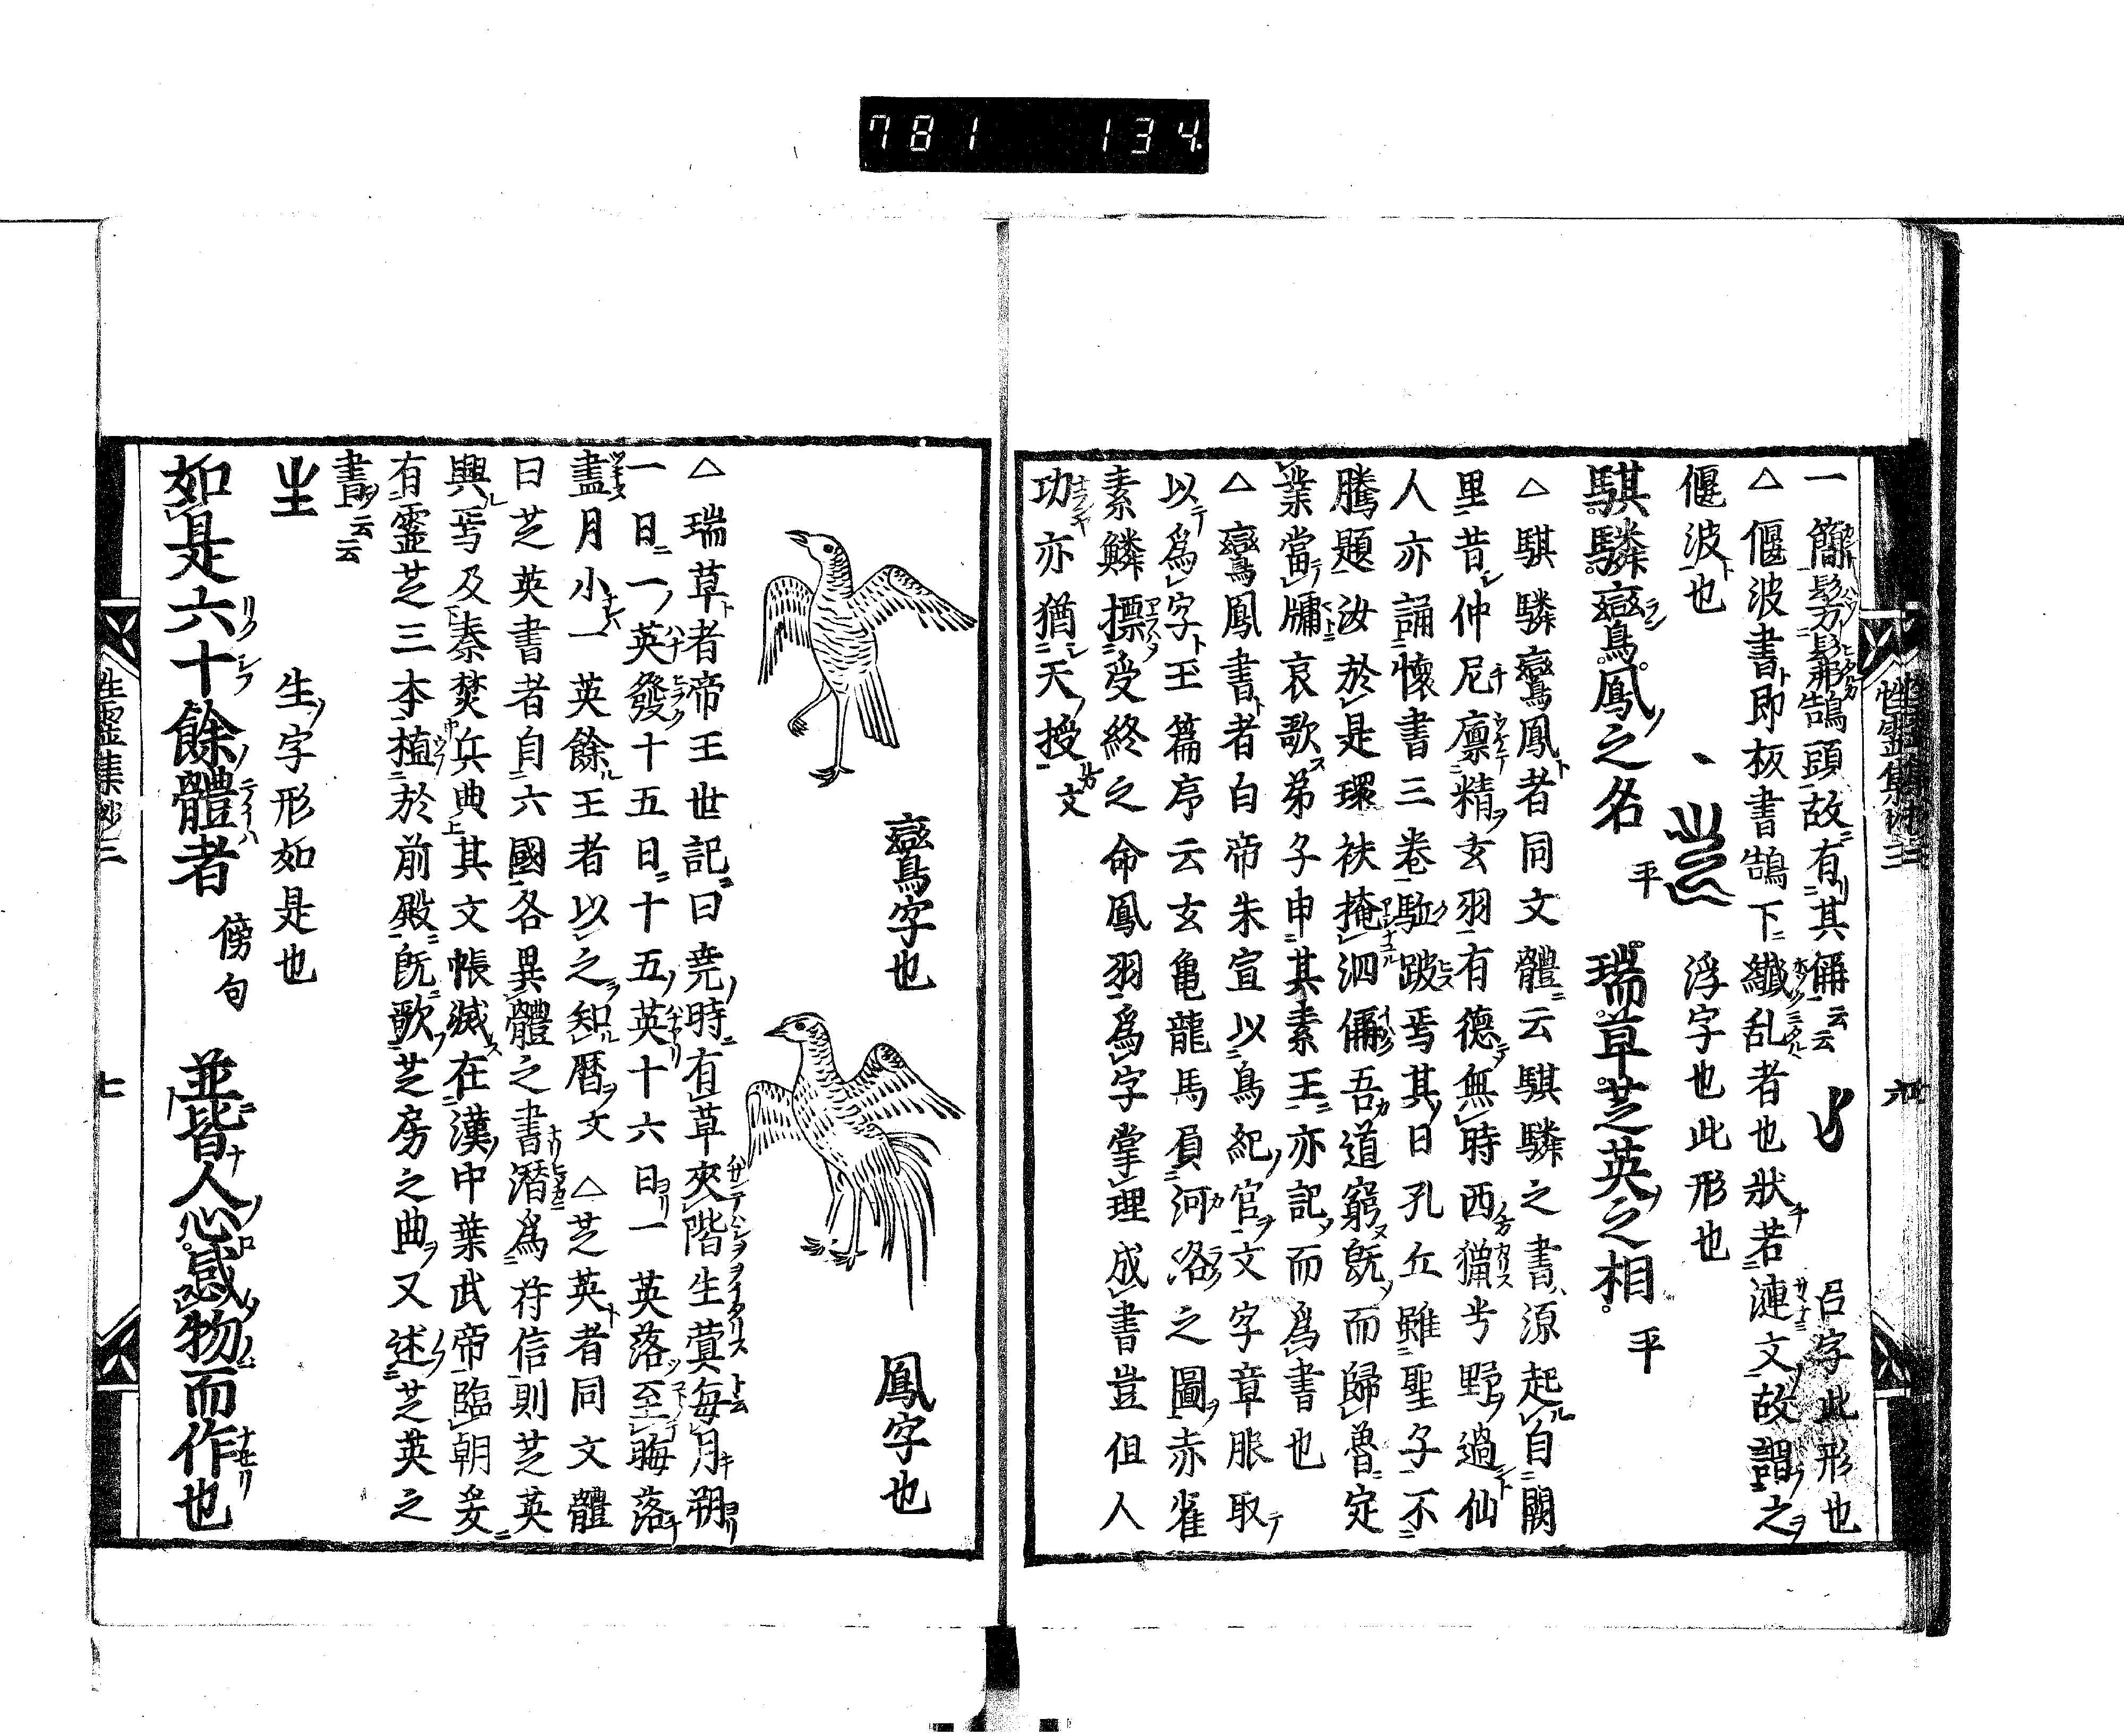 781 134
一簡髣髴鵠頭故有其偁云云 呂字此形也
△偃波書即板書鵠下纎乱者也狀若漣文故謂之
偃波也 浮字也此形也
騏驎鸞鳳之名 平 瑞草芝英之相 平
△騏驎鸞鳳者同文體云騏驎之書源起自闕
里昔仲尼廪精玄羽有德無時西獵号野過仙
人亦誦懷書三卷駈跛焉其日孔丘雖聖子不
騰題汝於是環袂掩泗偁吾道窮既而歸魯定
業當牗哀歌弟子申其素王亦記而爲書也
△鸞鳳書者白帝朱宣以鳥紀官文字章服取
以爲字玉篇序云玄亀龍馬負河洛之圖赤雀
素鱗摽受終之命鳳羽爲字掌理成書豈但人
功亦猶天授文
性霊集鈔三 六
鸞字也 鳳字也
△瑞草者帝王世記曰尭時有草夾階生蓂每月朔
一日一英發十五日十五英十六日一英落至晦落
盡月小一英餘王者以之知暦文 △芝英者同文體
曰芝英書者自六國各異體之書潛爲符信則芝英
興焉及秦焚兵典其文帳滅在漢中葉武帝臨朝爰
有霊芝三本植於前殿既歌芝房之曲又述芝英之
書云云
生字形如是也
如是六十餘體者 傍句 並皆人心感物而作也
性霊集鈔三 七